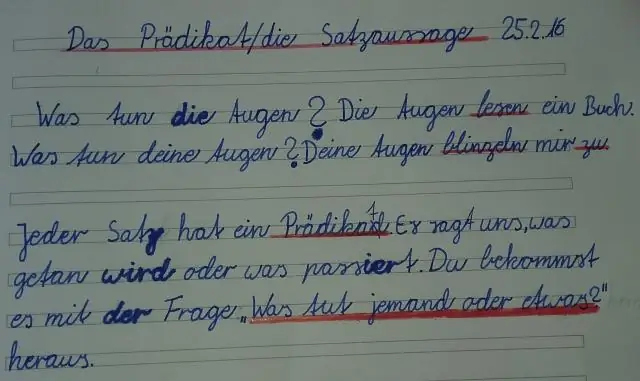 Das Prädikat/die Satzaussage 25.2.16
Was tun die Augen? Die Augen lesen ein Buch.
Was tun deine Augen? Deine Augen blinzeln mir zu.
Jeder Satz hat ein Prädikat. Er sagt uns, was
getan wird oder was passiert. Du bekommst
es mit der Frage „Was tut jemand oder etwas?"
heraus.